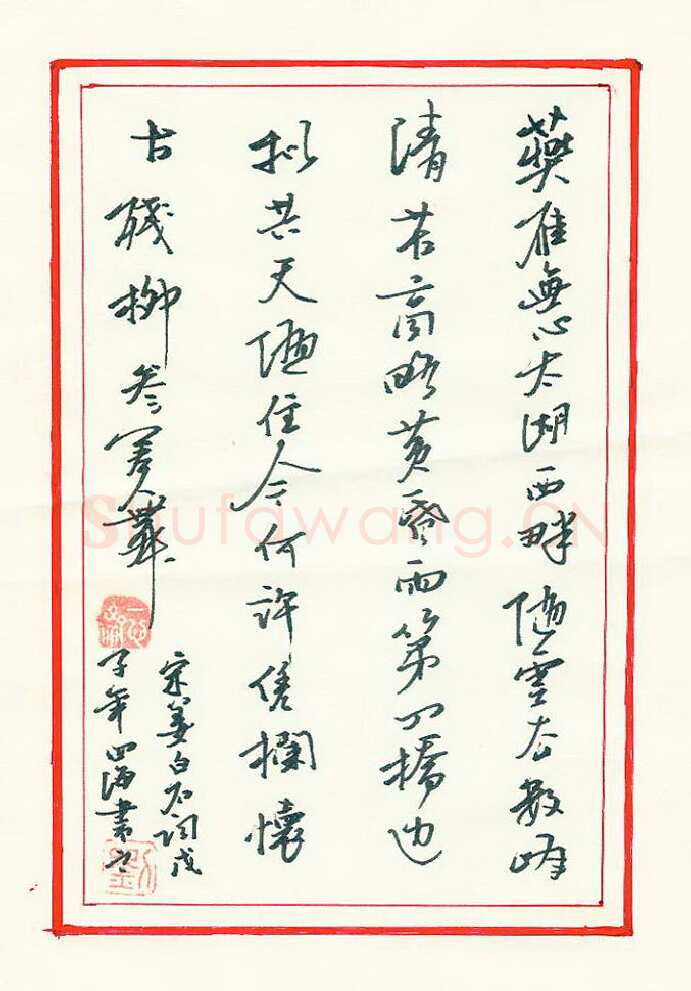 燕雁無心太湖西畔隨雲去數峰
清苦商略黄昏雨第四橋边
拟共天隨住今何許凭欄懷
古殘柳參差舞
宋姜白石詞戊
子年四海書之
劉
Shufawang.CN